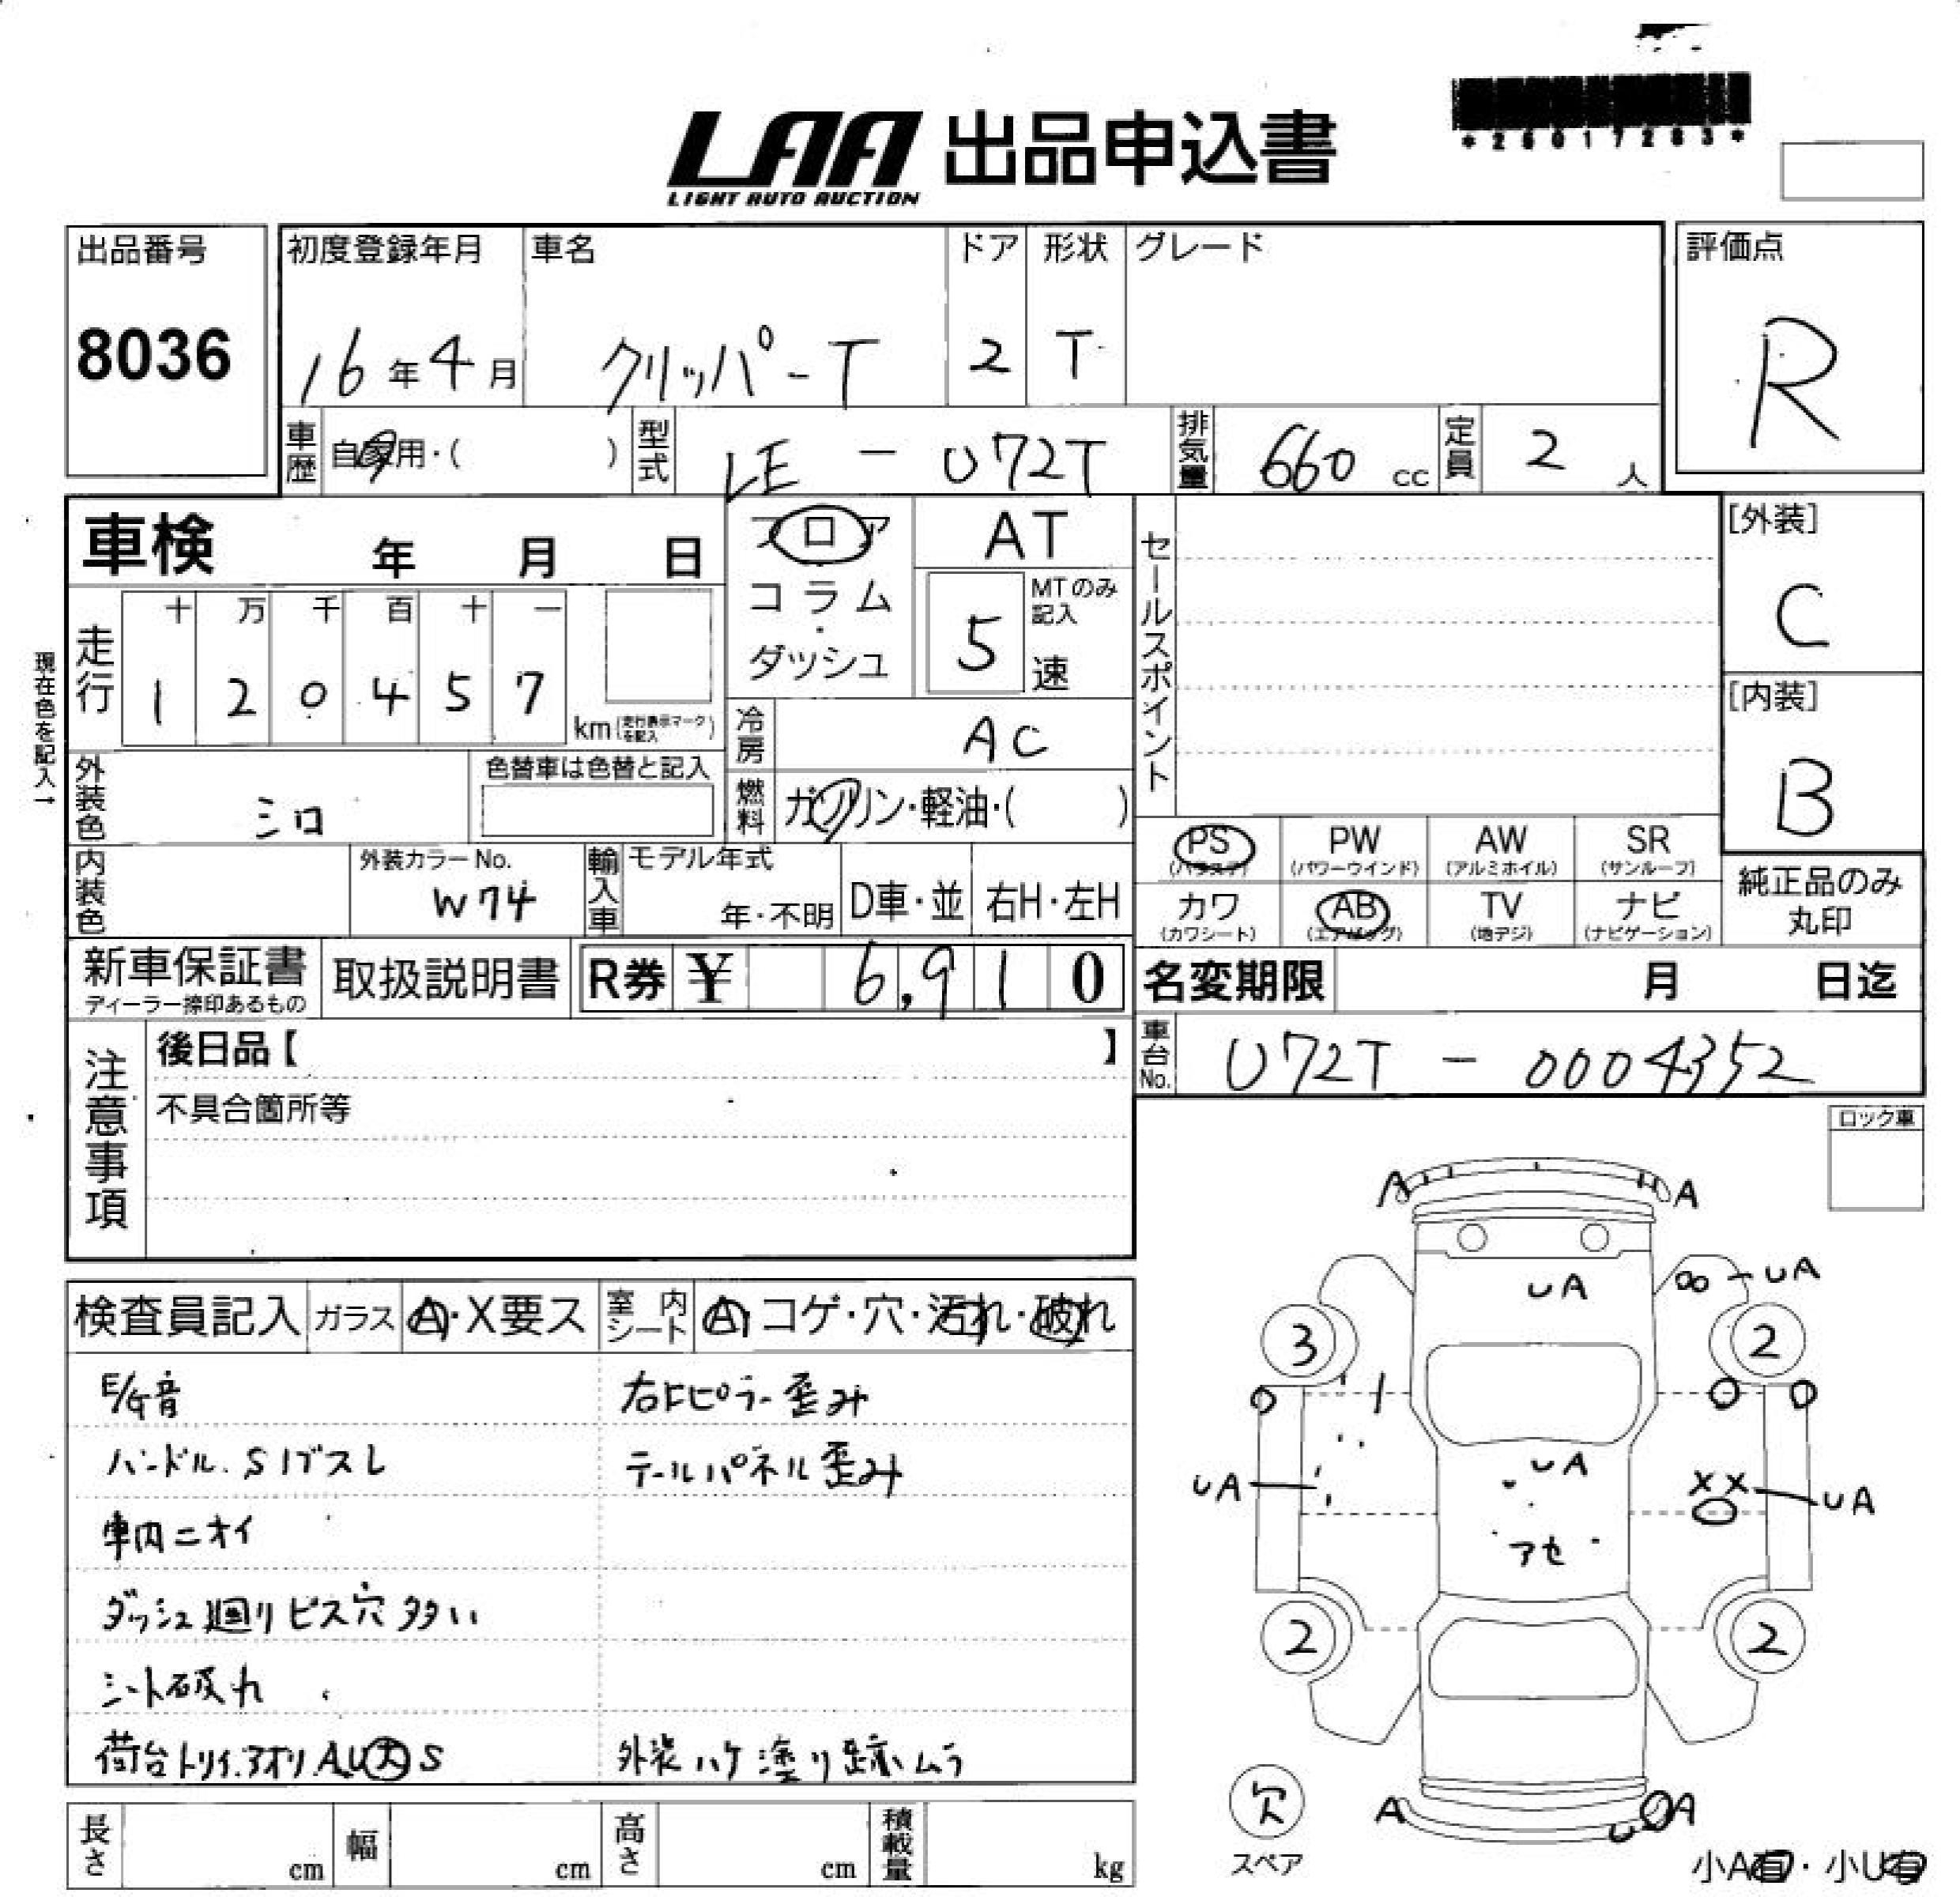 *26017263*
LAA 出品申込書
LIGHT AUTO AUCTION
出品番号 初度登録年月 車名 ドア 形状 グレード 評価点
8036 16年4月 クリッパーT 2 T R
車歴 自家用・( ) 型式 LE - U72T 排気量 660 cc 定員 2 人
車検 年 月 日 フロア AT セールスポイント [外装]
コラム・ダッシュ 5 MTのみ記入 速 C
現在色を記入→
走行 十 万 千 百 十 一
1 2 0 4 5 7 km (走行表示マークを記入) 冷房 AC [内装]
外装色 シロ 色替車は色替と記入 燃料 ガソリン・軽油・( ) B
PS (パワステ) PW (パワーウインド) AW (アルミホイル) SR (サンルーフ)
内装色 外装カラーNo. W74 輸入車 モデル年式 年・不明 D車・並 右H・左H カワ (カワシート) AB (エアバッグ) TV (地デジ) ナビ (ナビゲーション) 純正品のみ丸印
新車保証書 ディーラー捺印あるもの 取扱説明書 R券 ¥ 6,910 名変期限 月 日迄
車台No. U72T - 0004352
注意事項 後日品【 】
不具合箇所等
ロック車
検査員記入 ガラス A・X要ス 室内シート A・コゲ・穴・汚れ・破れ
E/G音 右Bピラー歪み
ハンドル.Sノブスレ テールパネル歪み
車内ニオイ
ダッシュ廻りビス穴多い
シート破れ
荷台トリイ.アオリ AU大S 外装ハケ塗り跡、ムラ
A A
UA UA
3 2
UA UA XX UA
アセ
2 2
欠 スペア A A
小A有・小U有
長さ cm 幅 cm 高さ cm 積載量 kg